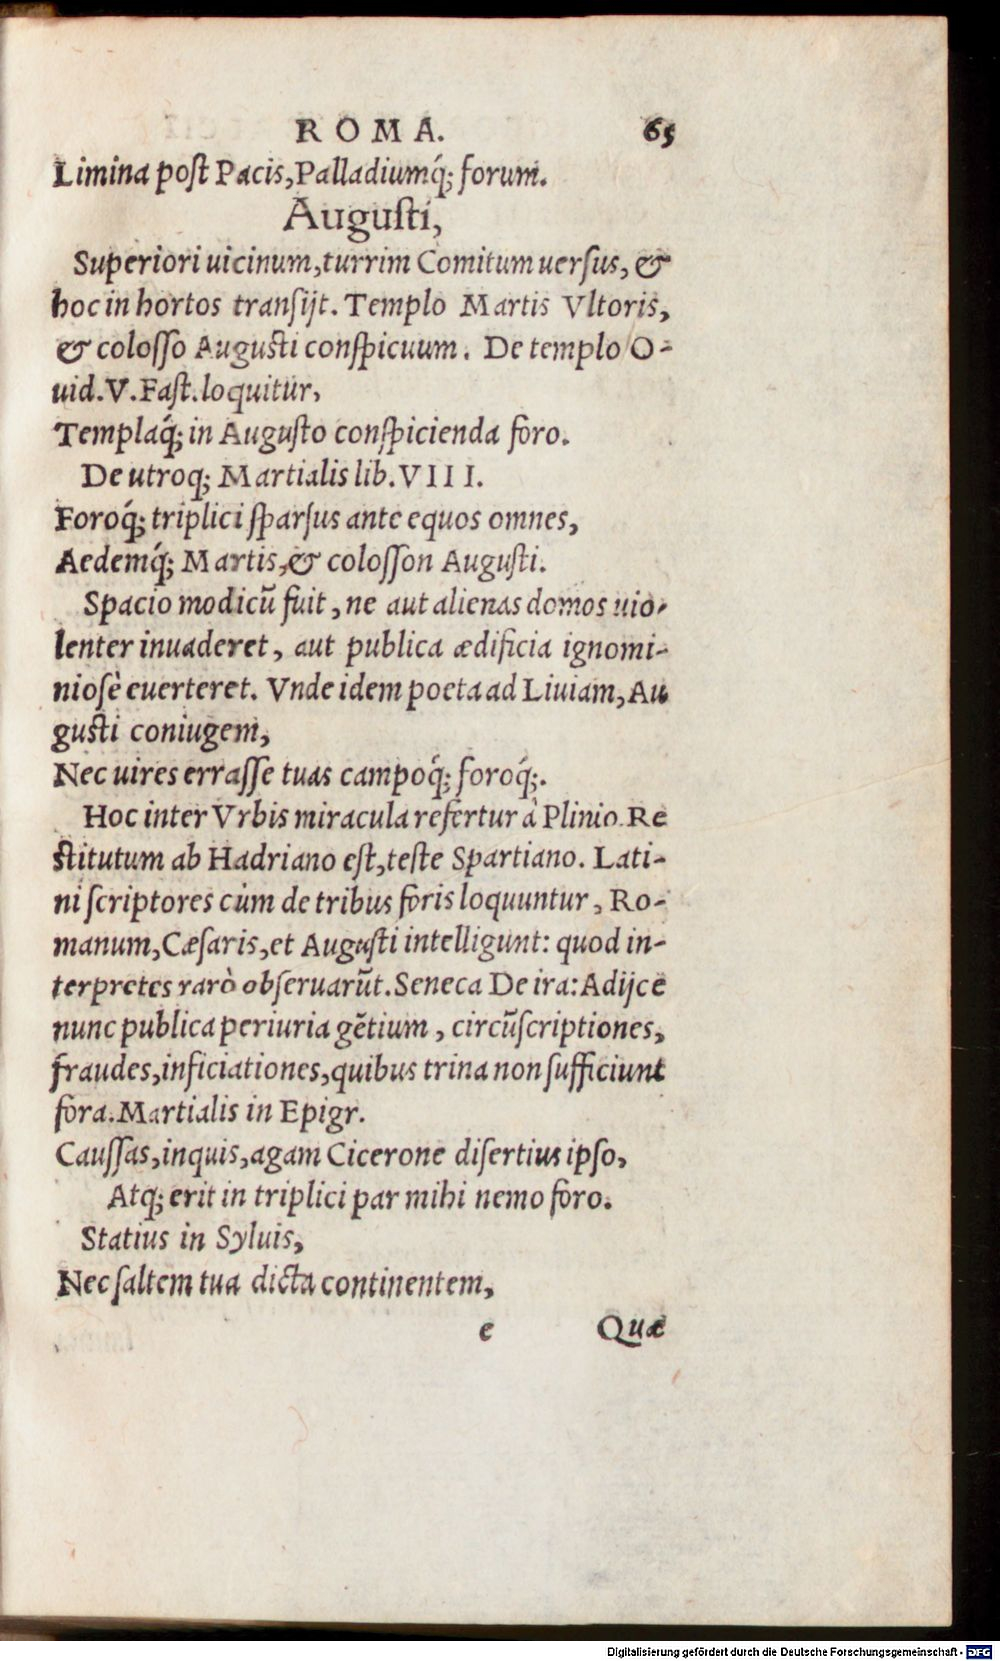 ROMA. 65
Limina post Pacis, Palladiumq́; forum.
Augusti,
Superiori uicinum, turrim Comitum uersus, &
hoc in hortos transijt. Templo Martis Vltoris,
& colosso Augusti conspicuum. De templo O-
uid. V. Fast. loquitur,
Templaq́; in Augusto conspicienda foro.
De utroq; Martialis lib. VIII.
Foroq́; triplici sparsus ante equos omnes,
Aedemq́; Martis, & colosson Augusti.
Spacio modicū fuit, ne aut alienas domos uio-
lenter inuaderet, aut publica ædificia ignomi-
niosè euerteret. Vnde idem poeta ad Liuiam, Au
gusti coniugem,
Nec uires errasse tuas campoq́; foroq́;.
Hoc inter Vrbis miracula refertur à Plinio. Re
stitutum ab Hadriano est, teste Spartiano. Lati-
ni scriptores cùm de tribus foris loquuntur, Ro-
manum, Cæsaris, et Augusti intelligunt: quod in-
terpretes rarò obseruarūt. Seneca De ira: Adijce
nunc publica periuria gētium, circūscriptiones,
fraudes, inficiationes, quibus trina non sufficiunt
fora. Martialis in Epigr.
Caussas, inquis, agam Cicerone disertius ipso,
Atq; erit in triplici par mihi nemo foro.
Statius in Syluis,
Nec saltem tua dicta continentem,
e Quæ
Digitalisierung gefördert durch die Deutsche Forschungsgemeinschaft - DFG